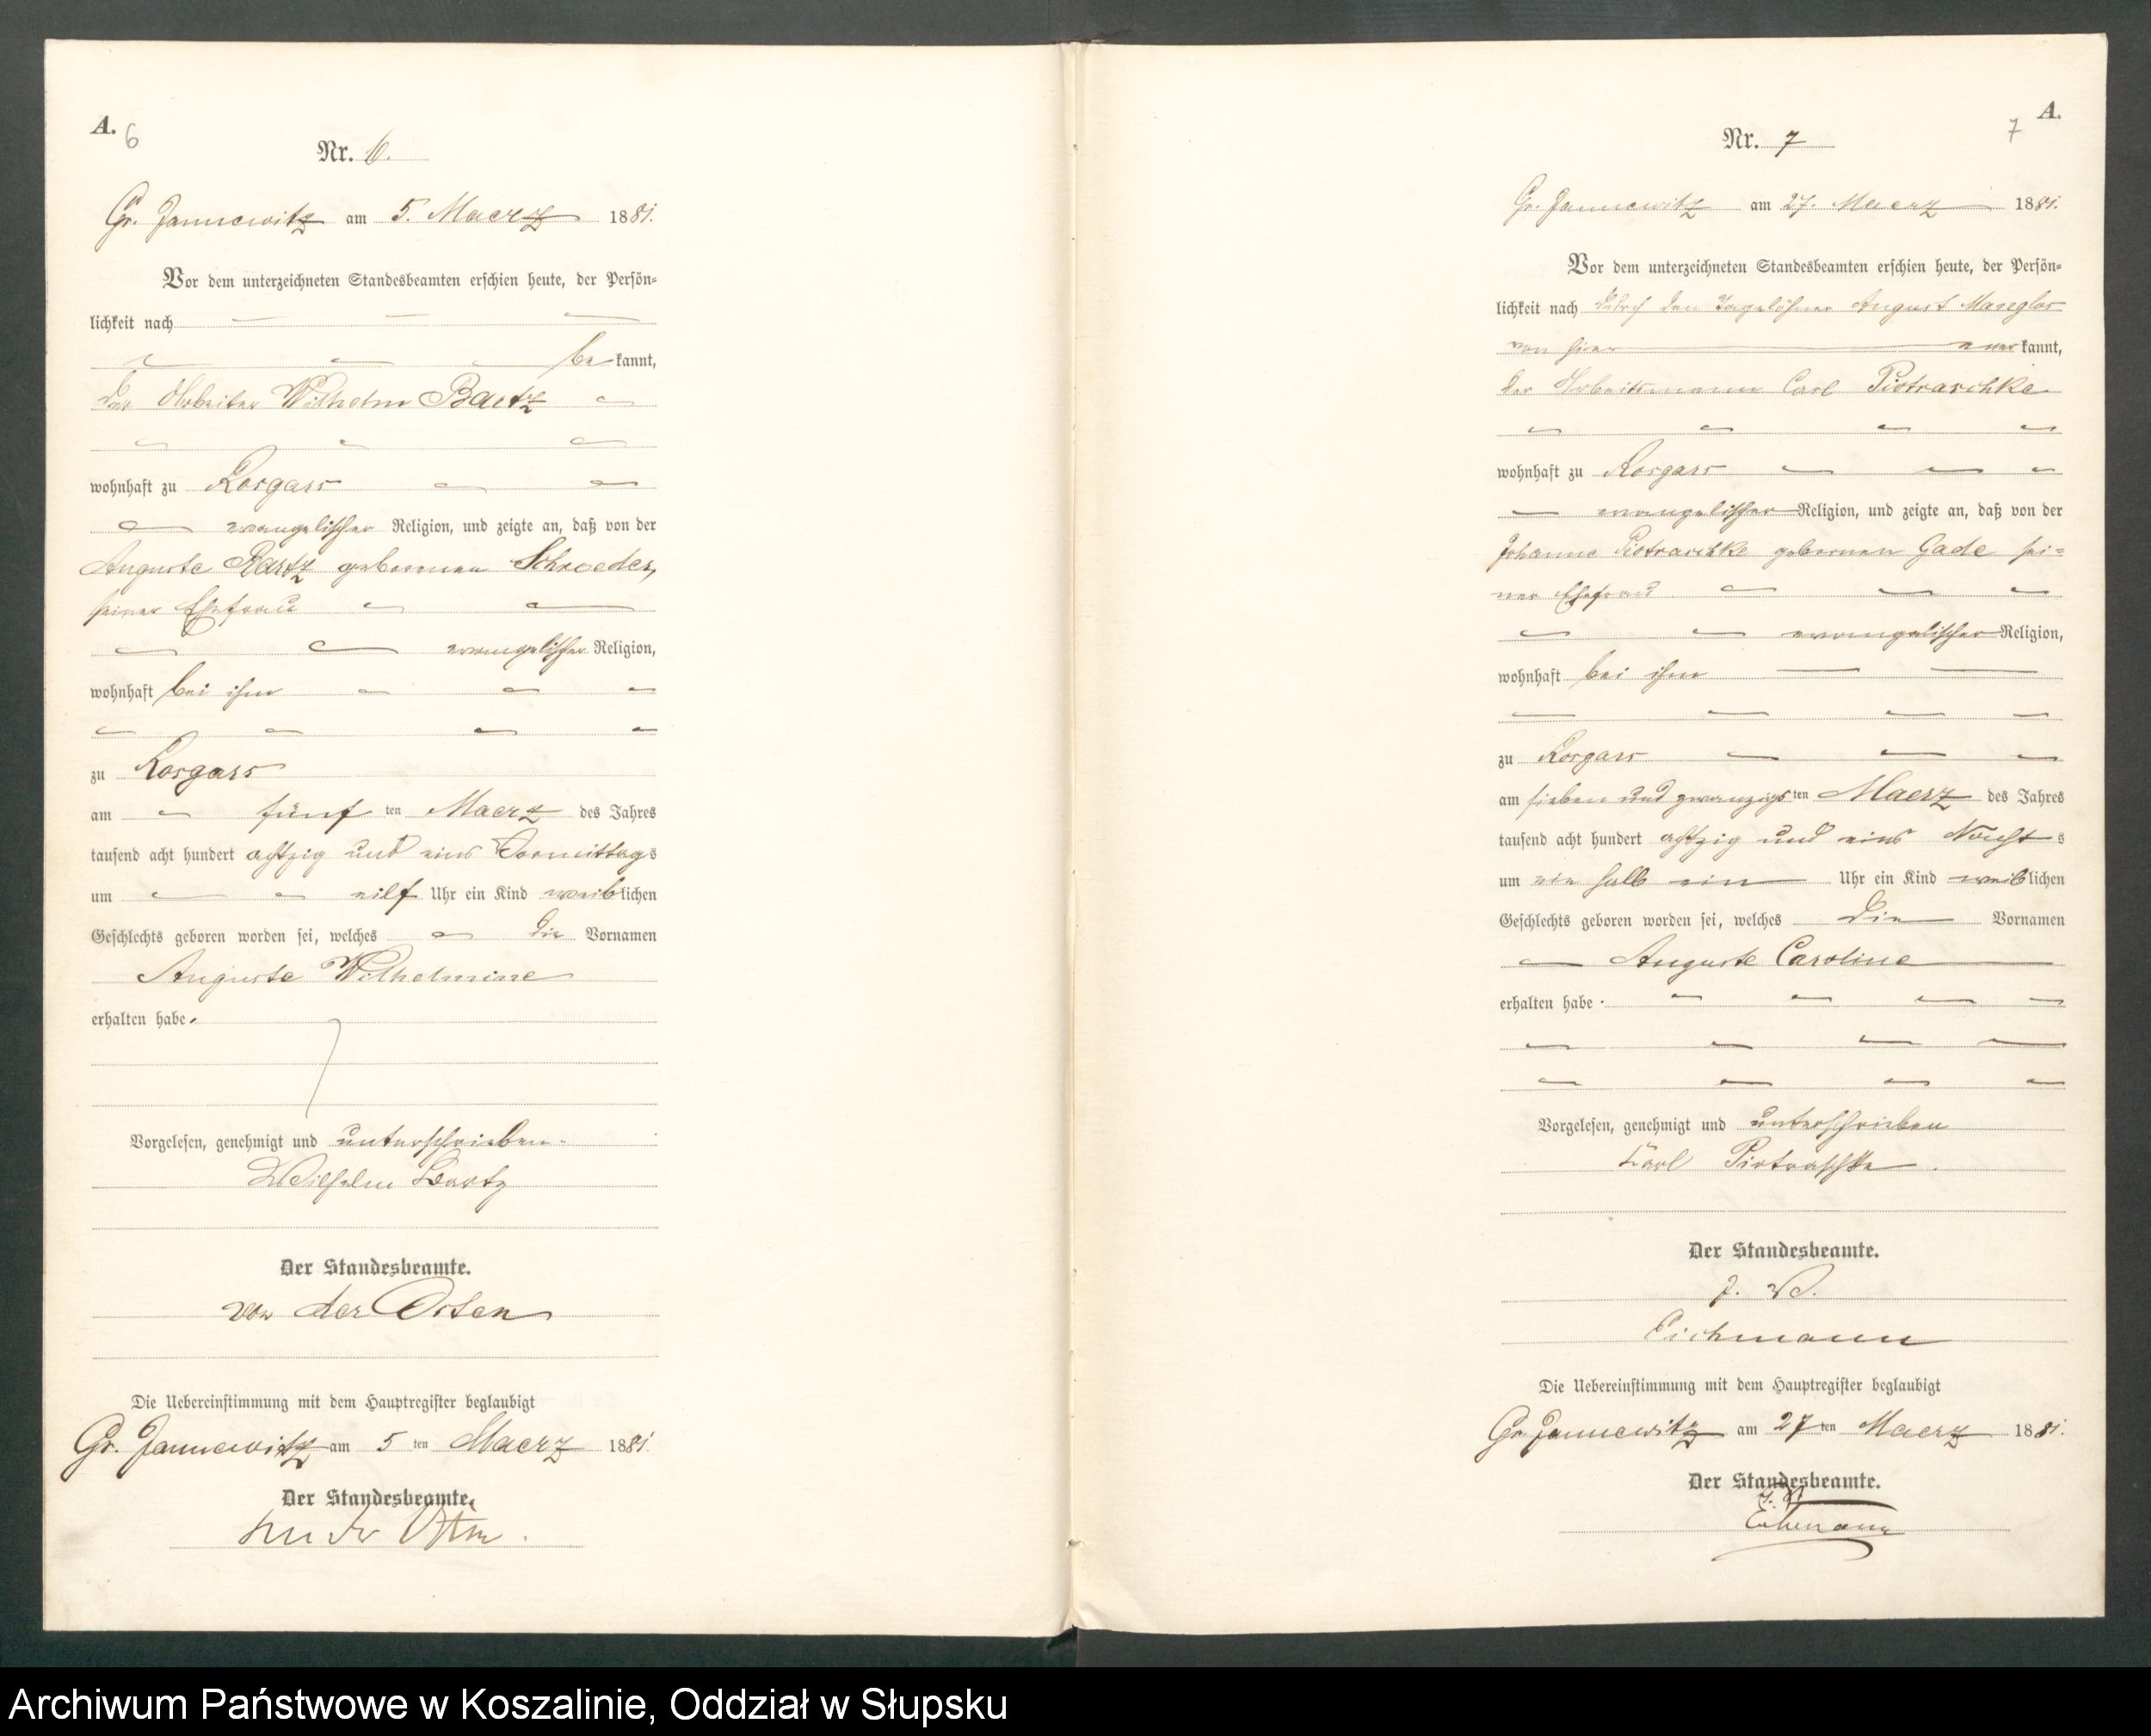 A.
6
Nr. 6.
Gr. Jannewitz am 5. Maerz 1881.
Vor dem unterzeichneten Standesbeamten erschien heute, der Persön-
lichkeit nach
be kannt,
der Arbeiter Wilhelm Bartz
wohnhaft zu Rosgars
evangelischer Religion, und zeigte an, daß von der
Auguste Bartz geborenen Schroeder,
seiner Ehefrau
evangelischer Religion,
wohnhaft bei ihm
zu Rosgars
am fünf ten Maerz des Jahres
tausend acht hundert achtzig und eins Vormittags
um eilf Uhr ein Kind weiblichen
Geschlechts geboren worden sei, welches die Vornamen
Auguste Wilhelmine
erhalten habe.
Vorgelesen, genehmigt und unterschrieben.
Wilhelm Bartz
Der Standesbeamte.
von der Osten
Die Uebereinstimmung mit dem Hauptregister beglaubigt
Gr. Jannewitz am 5 ten Maerz 1881.
Der Standesbeamte.
von der Osten.
A.
7
Nr. 7
Gr. Jannewitz am 27. Maerz 1881.
Vor dem unterzeichneten Standesbeamten erschien heute, der Persön-
lichkeit nach durch den Tagelöhner August Manglos
von hier aner kannt,
der Arbeitsmann Carl Piotraschke
wohnhaft zu Rosgars
evangelischer Religion, und zeigte an, daß von der
Johanne Piotraschke geborenen Gade sei-
ner Ehefrau
evangelischer Religion,
wohnhaft bei ihm
zu Rosgars
am sieben und zwanzigs ten Maerz des Jahres
tausend acht hundert achtzig und eins Nachts
um ein halb ein Uhr ein Kind weiblichen
Geschlechts geboren worden sei, welches die Vornamen
Auguste Caroline
erhalten habe.
Vorgelesen, genehmigt und unterschrieben
Karl Piotraschke.
Der Standesbeamte.
J. V.
Eichmann
Die Uebereinstimmung mit dem Hauptregister beglaubigt
Gr. Jannewitz am 27 ten Maerz 1881.
Der Standesbeamte.
J. V.
Eichmann
Archiwum Państwowe w Koszalinie, Oddział w Słupsku